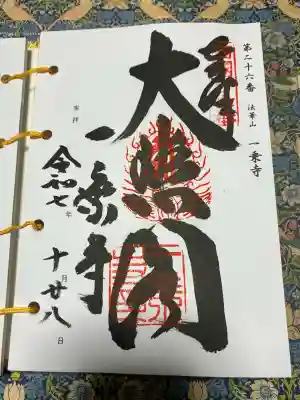 第二十六番 法華山 一乗寺
奉拝
大悲閣
一乗寺
奉拝
令和七年
十月廿八日